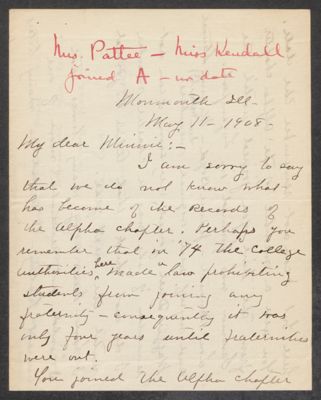 Mrs. Pattee - Miss Kendall
joined A - no date
Monmouth Ill-
May 11-1908-
My dear Minnie:-
I am sorry to say
that we do not know what
has become of the records of
the Alpha chapter. Perhaps you
remember that in '74 the college
authorities here made a law prohibiting
students from joining any
fraternity - consequently it was
only four years until fraternities
were out.
You joined the Alpha chapter